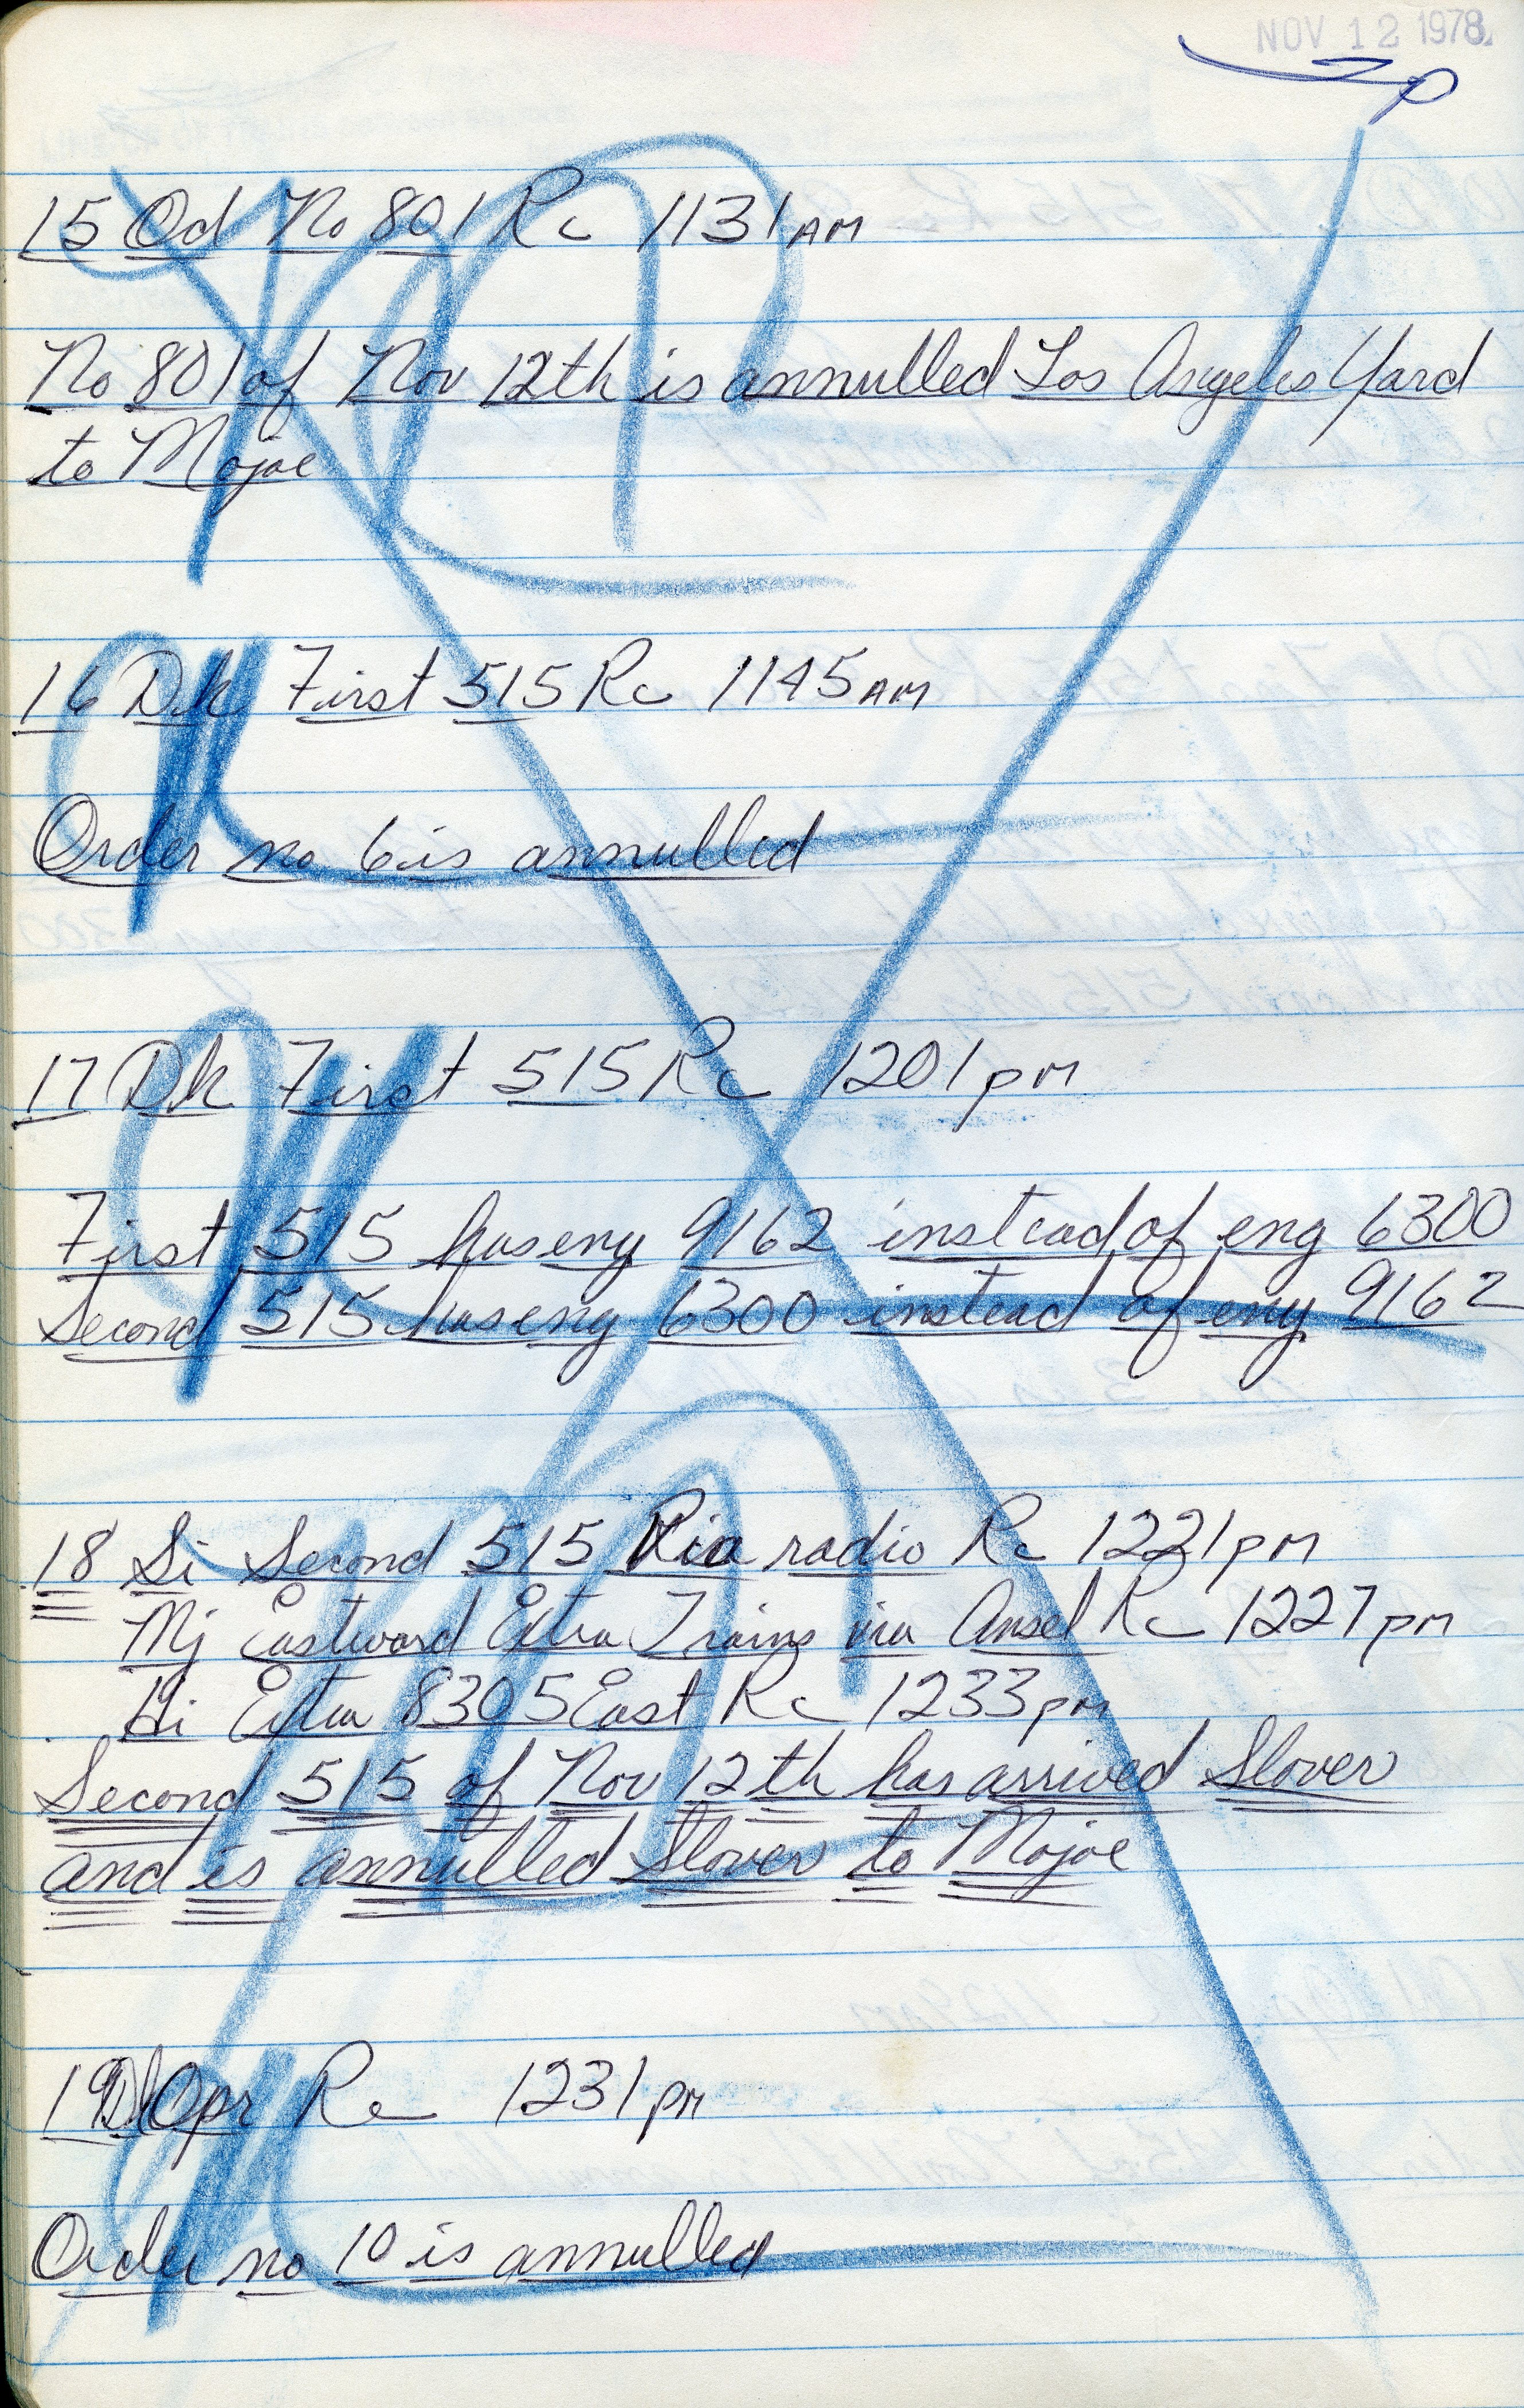 NOV 12 1978
15 Od No 801 Rc 1131 AM
No 801 of Nov 12th is annulled Los Angeles Yard
to Mojae
16 Dk First 515 Rc 1145 AM
Order no 6 is annulled
17 Dk First 515 Rc 1201 pm
First 515 has eng 9162 instead of eng 6300
Second 515 has eng 6300 instead of eng 9162
18 Si Second 515 Via radio Rc 1221 pm
Mj Eastward Extra Trains via Ansel Rc 1227 pm
Extra 8305 East Rc 1233 pm
Second 515 of Nov 12th has arrived Slover
and is annulled Slover to Mojae
19 Opr Rc 1231 pm
Order no 10 is annulled